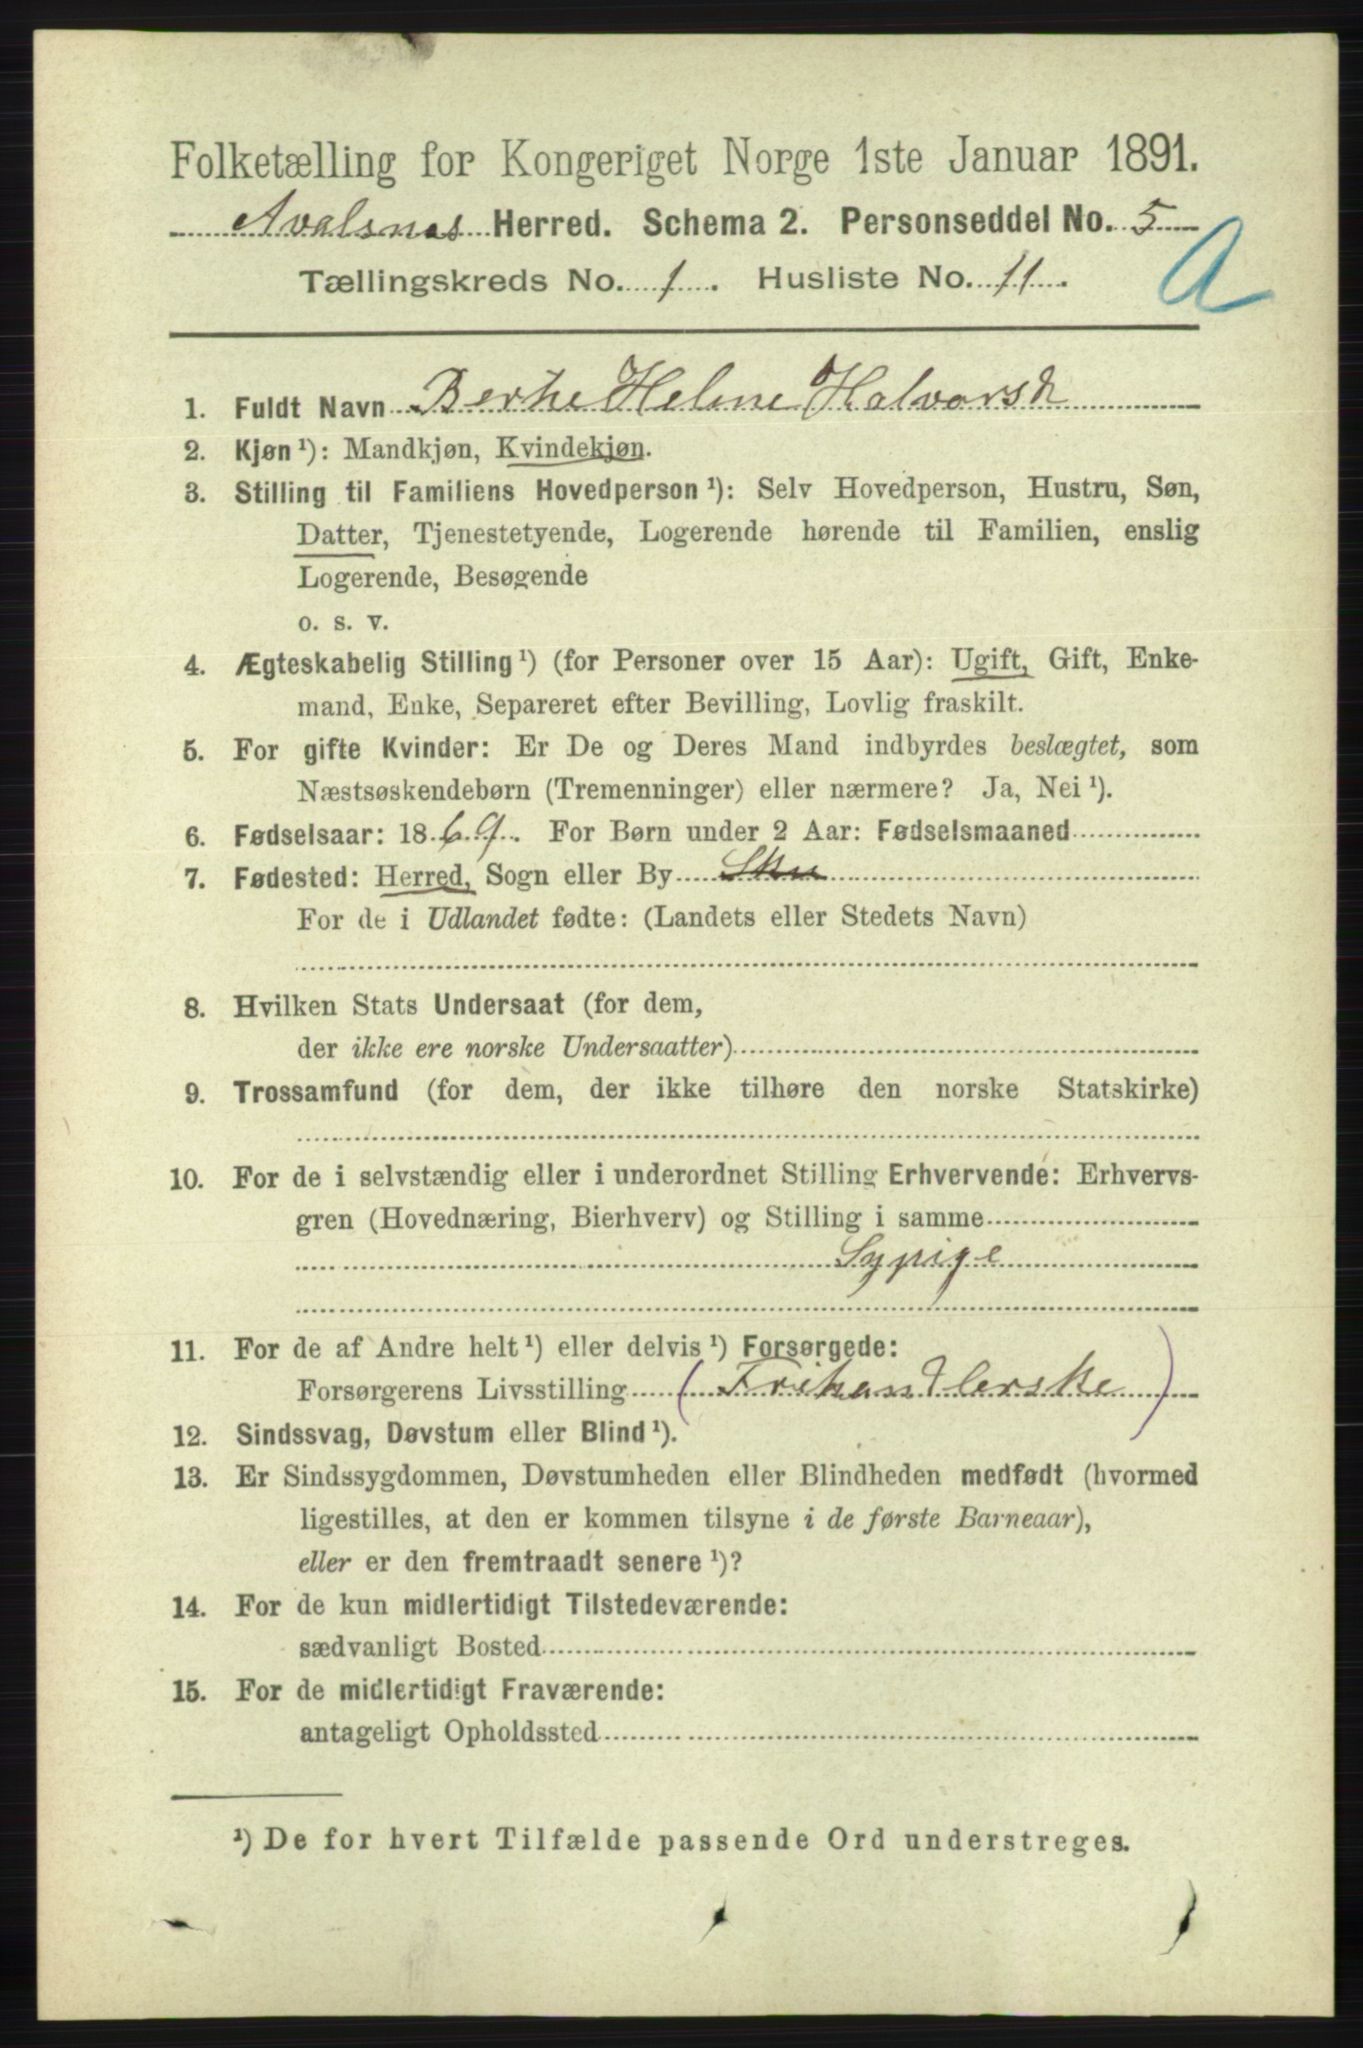 Folketælling for Kongeriget Norge 1ste Januar 1891.
Avalsnes Herred. Schema 2. Personseddel No. 5
Tællingskreds No. 1. Husliste No. 11.
A
1. Fuldt Navn Berthe Helene Halvorsd
2. Kjøn ¹): Mandkjøn, Kvindekjøn.
3. Stilling til Familiens Hovedperson ¹): Selv Hovedperson, Hustru, Søn,
Datter, Tjenestetyende, Logerende hørende til Familien, enslig
Logerende, Besøgende
o. s. v.
4. Ægteskabelig Stilling ¹) (for Personer over 15 Aar): Ugift, Gift, Enke-
mand, Enke, Separeret efter Bevilling, Lovlig fraskilt.
5. For gifte Kvinder: Er De og Deres Mand indbyrdes beslægtet, som
Næstsøskendebørn (Tremenninger) eller nærmere? Ja, Nei ¹).
6. Fødselsaar: 1869. For Børn under 2 Aar: Fødselsmaaned
7. Fødested: Herred, Sogn eller By
For de i Udlandet fødte: (Landets eller Stedets Navn)
8. Hvilken Stats Undersaat (for dem,
der ikke ere norske Undersaatter)
9. Trossamfund (for dem, der ikke tilhøre den norske Statskirke)
10. For de i selvstændig eller i underordnet Stilling Erhvervende: Erhvervs-
gren (Hovednæring, Bierhverv) og Stilling i samme
Sypige
11. For de af Andre helt ¹) eller delvis ¹) Forsørgede:
Forsørgerens Livsstilling (Frihandlerske)
12. Sindssvag, Døvstum eller Blind ¹).
13. Er Sindssygdommen, Døvstumheden eller Blindheden medfødt (hvormed
ligestilles, at den er kommen tilsyne i de første Barneaar),
eller er den fremtraadt senere ¹)?
14. For de kun midlertidigt Tilstedeværende:
sædvanligt Bosted
15. For de midlertidigt Fraværende:
antageligt Opholdssted
¹) De for hvert Tilfælde passende Ord understreges.